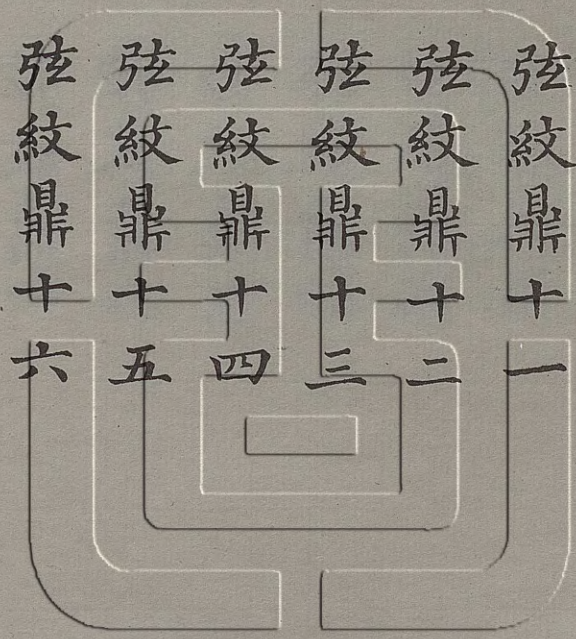 弦紋鼎十一
弦紋鼎十二
弦紋鼎十三
弦紋鼎十四
弦紋鼎十五
弦紋鼎十六